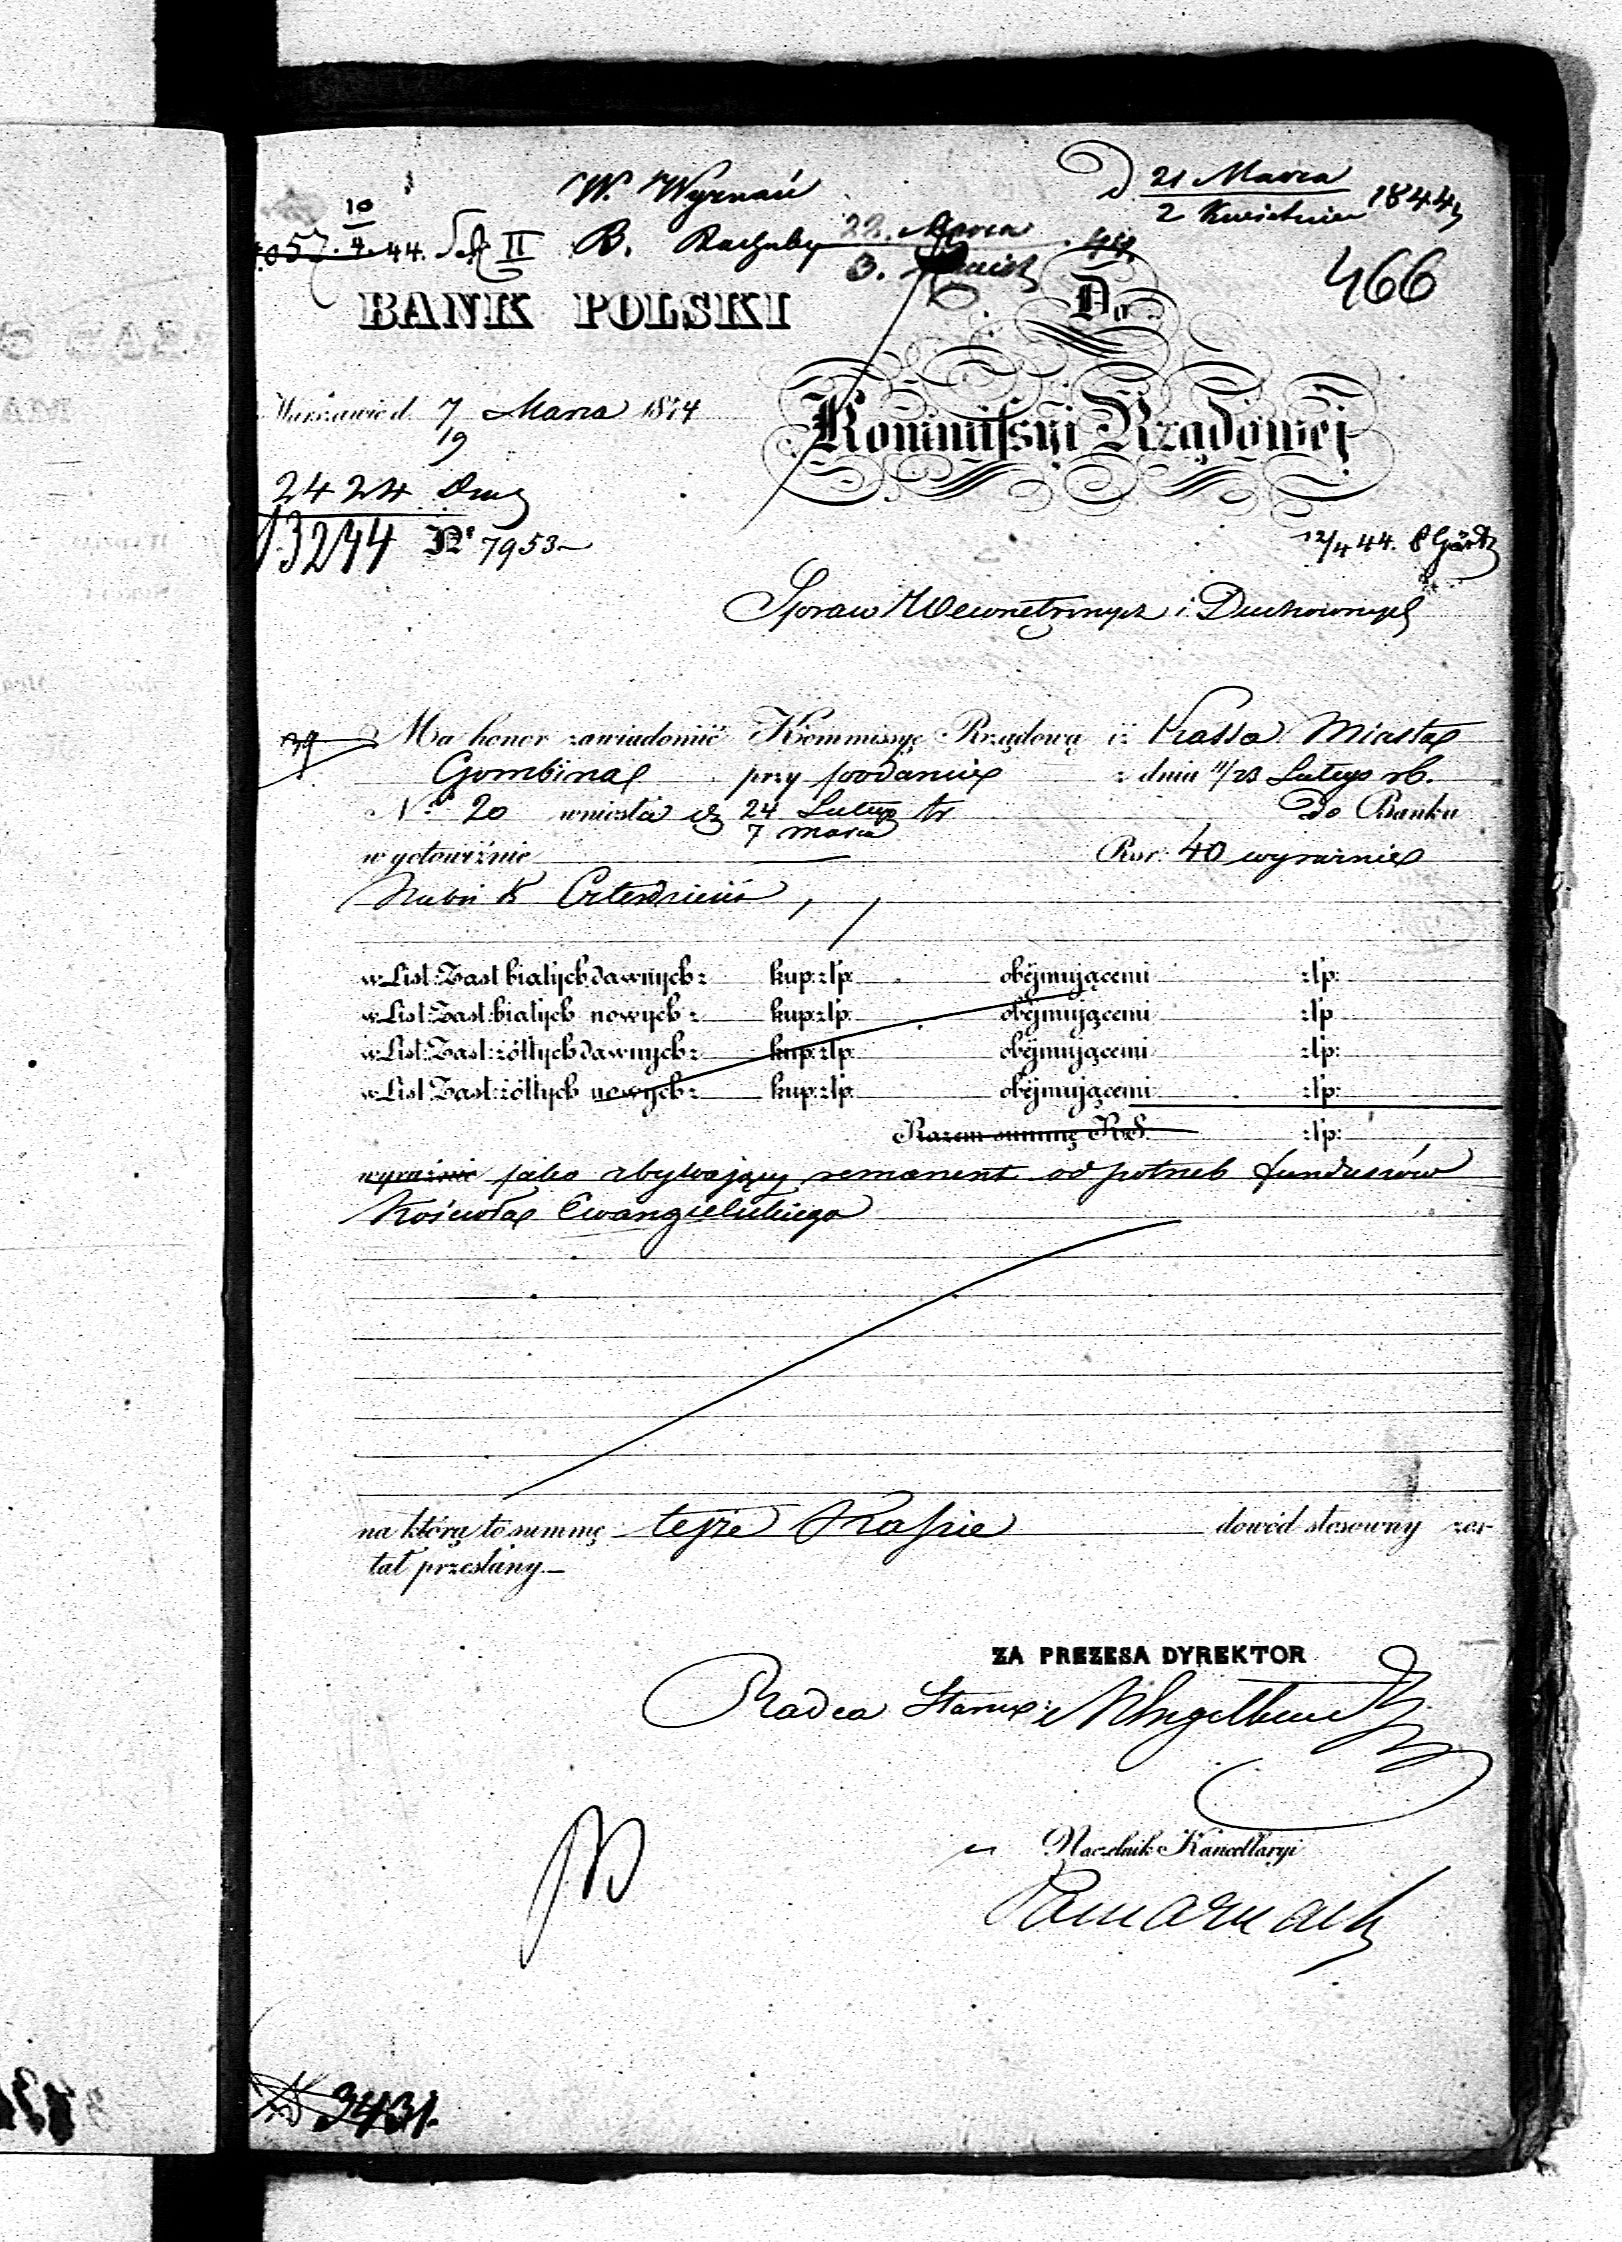 W. Wyznań
D 21 Marca 1844
2 Kwietnia
10
057. 4. 44. Sek II B. Rachuby 22. Marca 44.
3.
466
BANK POLSKI
Do
Kommissyi Rządowej
Warszawie d. 7 Marca 1844
19
2424
13244 Nr 7953
12/4 44.
Spraw Wewnętrznych i Duchownych
Ma honor zawiadomić Kommissyę Rządową iż Kassa Miasta
Gombina przy podaniu z dnia 11/23 Lutego rb.
No 20 wniosła d 24 Lutego tr Do Banku
7 marca
w gotowiźnie Rsr: 40 wyraźnie
Rubli Sr Czterdzieści
w List: Zast białych dawnych z kup: złp. obejmującemi złp:
w List: Zast: białych nowych z kup: złp. obejmującemi złp
w List: Zast: żółtych dawnych z kup: złp. obejmującemi złp:
w List Zast: żółtych nowych z kup: złp. obejmującemi złp:
Razem summę RS. złp:
wyraźnie jako zbywający remanent od potrzeb funduszów
Kościoła Ewangielickiego
na którą to summę tejże Kassie dowód stosowny zos-
tał przesłany.—
ZA PREZESA DYREKTOR
Radca Stanu
Naczelnik Kancellaryi
3431.